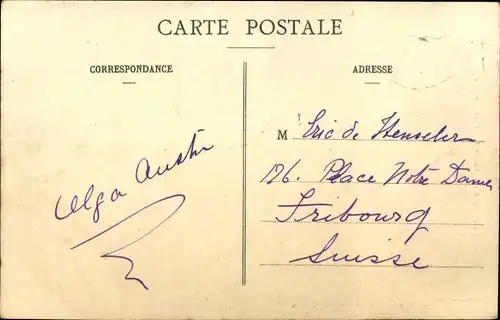 CARTE POSTALE
CORRESPONDANCE
ADRESSE
Olga Austin
M Eric de Henseler
126. Place Notre Dame
Fribourg
Suisse